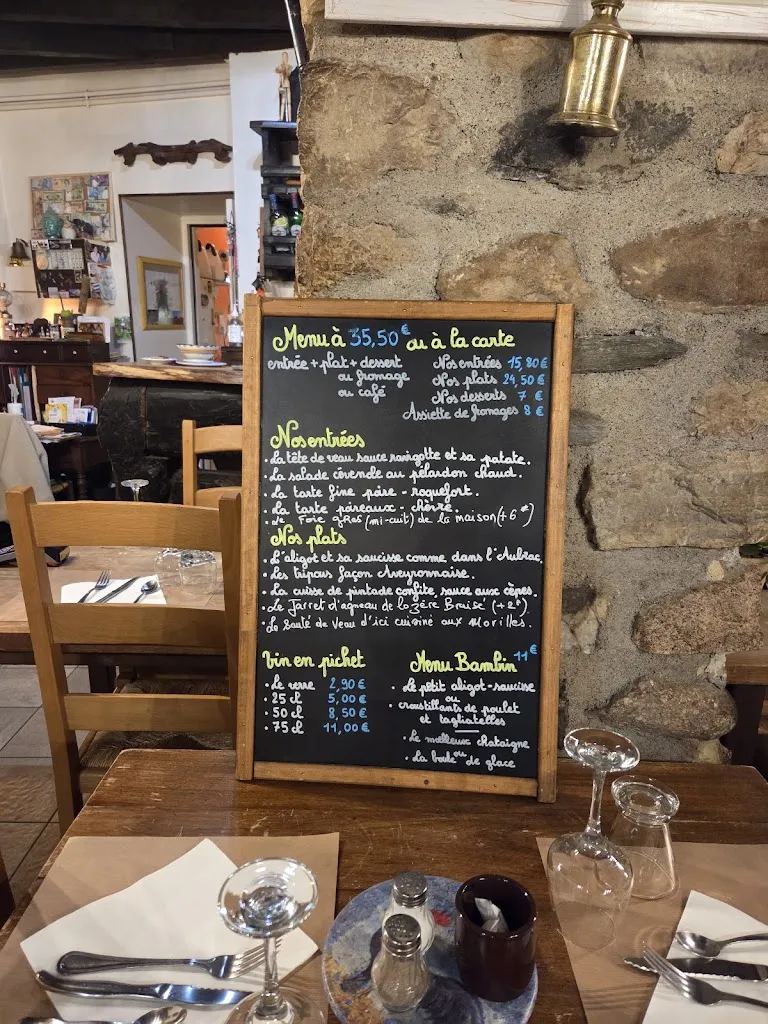 Menu à 35,50€ ou à la carte
entrée + plat + dessert
ou fromage
ou café
Nos entrées 15,80€
Nos plats 24,50€
Nos desserts 7€
Assiette de fromages 8€
Nos entrées
• La tête de veau sauce ravigotte et sa patate.
• La salade cévenole au pélardon chaud.
• La tarte fine poire - roquefort.
• La tarte poireaux - chèvre.
• Le Foie gras (mi-cuit) de la maison (+6€)
Nos plats
• L'aligot et sa saucisse comme dans l'Aubrac.
• Les tripous façon Aveyronnaise.
• La cuisse de pintade confite, sauce aux cèpes.
• Le Jarret d'agneau de la Braise (+2€).
• Le Sauté de Veau d'ici cuisiné aux Morilles.
Vin en pichet
• Le verre 2,90€
• 25 cl 5,00€
• 50 cl 8,50€
• 75 cl 11,00€
Menu Bambin 11€
• Le petit aligot-saucisse
ou
• croustillants de poulet
et tagliatelles
• Le moelleux chataigne
ou
• La boule de glace